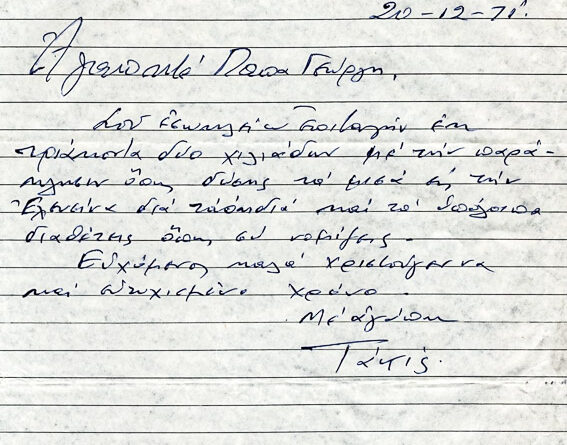 20-12-71.
Ἀγαπητέ Παπα Γεώργη,
Σοῦ ἐσωκλείω ἐπιταγήν ἐκ
τριάκοντα δύο χιλιάδων μέ τήν παρά-
κλησιν ὅπως δώσης τά μισά εἰς τήν
Ἐλευσῖνα διά τά παιδιά καί τά ὑπόλοιπα
διαθέτης ὅπως σύ νομίζεις.
Εὐχόμενος καλά χριστούγεννα
καί εὐτυχισμένο χρόνο
Μέ ἀγάπη
Τάκις.